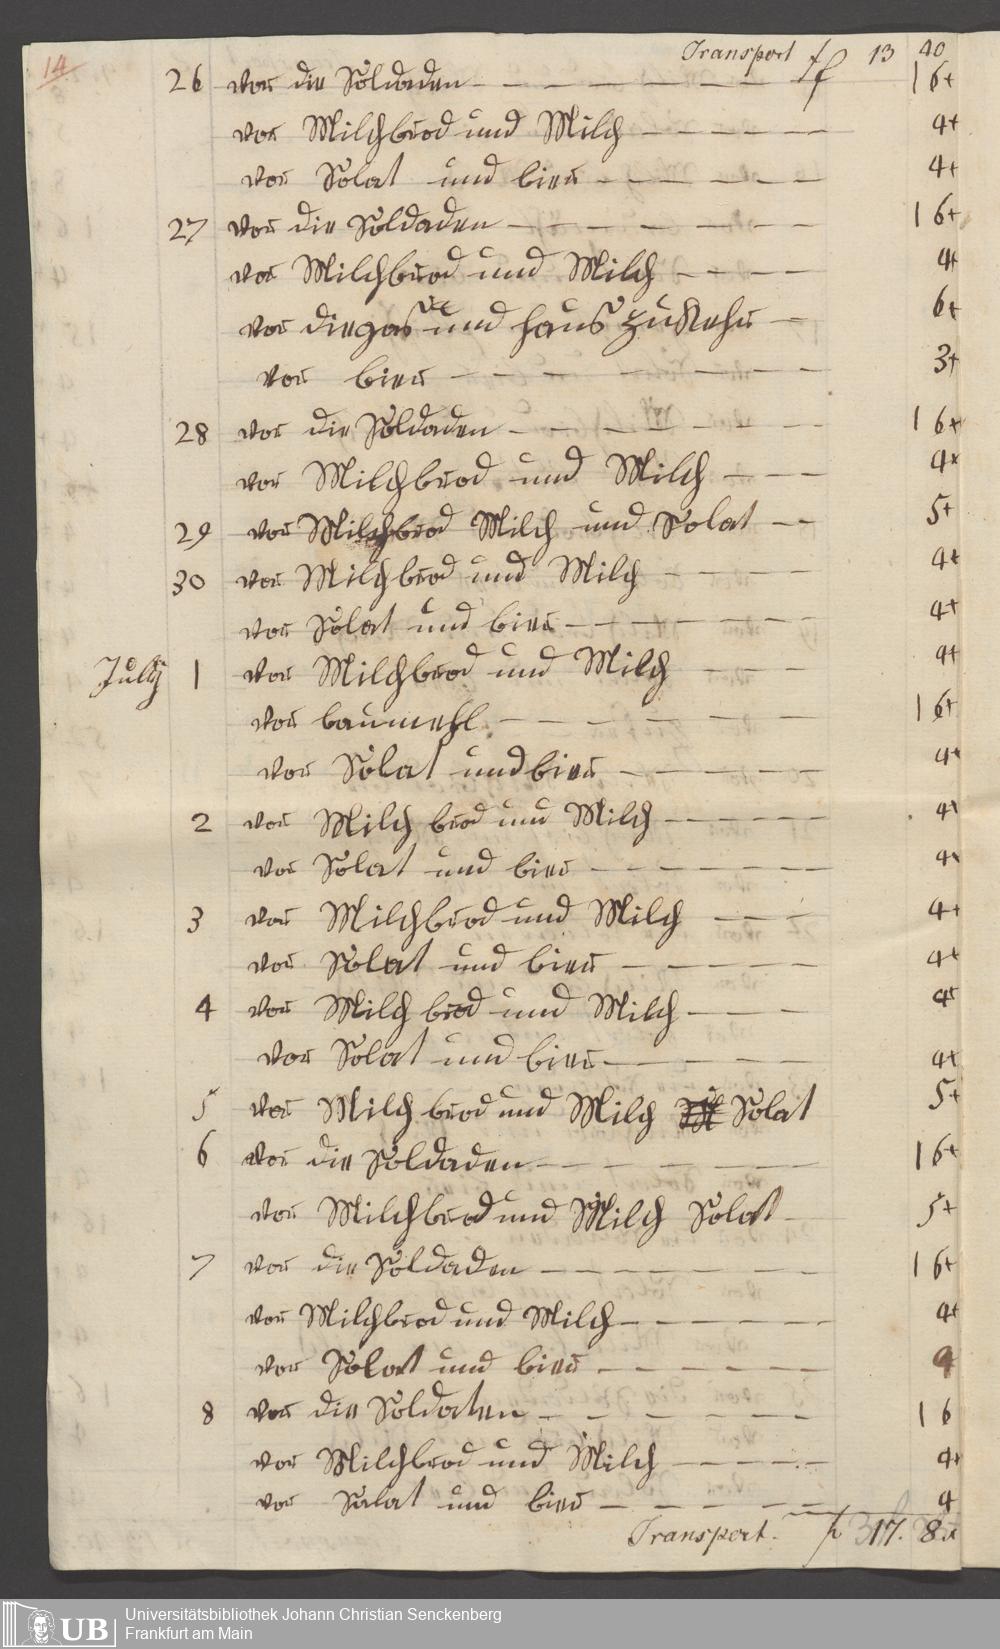 14
Transport f 13 40
26 vor die Soldaden 16+
vor Milchbrod und Milch 4+
vor Solat und bier 4+
27 vor die Soldaden 16+
vor Milchbrod und Milch 4+
vor die gas und haus zu Kehr 6+
vor bier 3+
28 vor die Soldaden 16+
vor Milchbrod und Milch 4x
29 vor Milchbrod Milch und Solat 5+
30 vor Milchbrod und Milch 4+
vor Solat und bier 4+
July 1 vor Milchbrod und Milch 4+
vor baumehl 16+
vor Solat und bier 4+
2 vor Milch brod und Milch 4x
vor Solat und bier 4x
3 vor Milchbrod und Milch 4+
vor Solat und bier 4+
4 vor Milch brod und Milch 4x
vor Solat und bier 4+
5 vor Milch brod und Milch Solat 5+
6 vor die Soldaden 16+
vor Milchbrod und Milch Solat 5+
7 vor die Soldaden 16+
vor Milchbrod und Milch 4+
vor Solat und bier 4
8 vor die Soldaten 16
vor Milchbrod und Milch 4+
vor Salat und bier 4
Transport. f 17. 8x
UB
Universitätsbibliothek Johann Christian Senckenberg
Frankfurt am Main